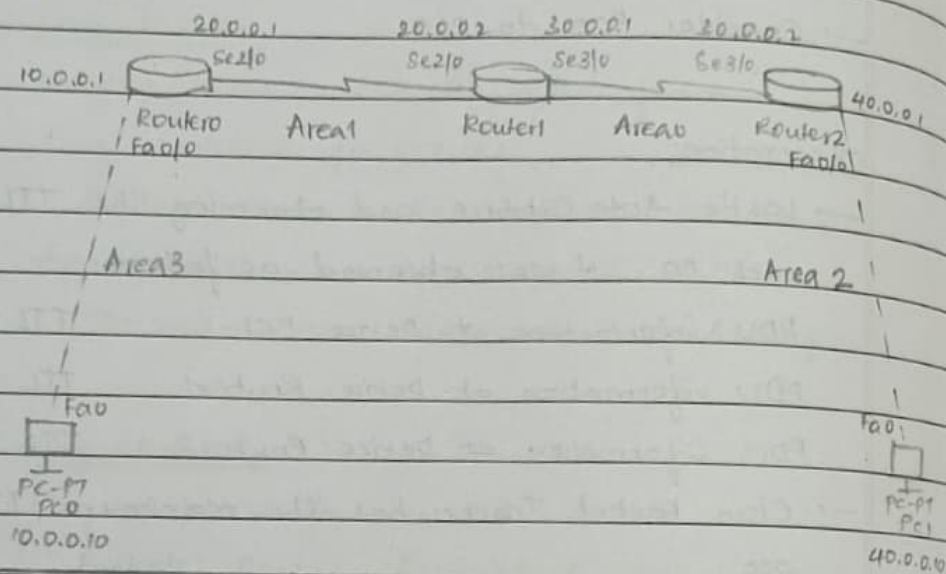 20.0.0.1 20.0.0.2 30.0.0.1 30.0.0.2
10.0.0.1 Se2/0 Se2/0 Se3/0 Se3/0 40.0.0.1
Router0 Area1 Router1 Area0 Router2
Fa0/0 Fa0/0
Area3 Area 2
Fa0 Fa0
PC-PT PC-PT
PC0 PC1
10.0.0.10 40.0.0.10